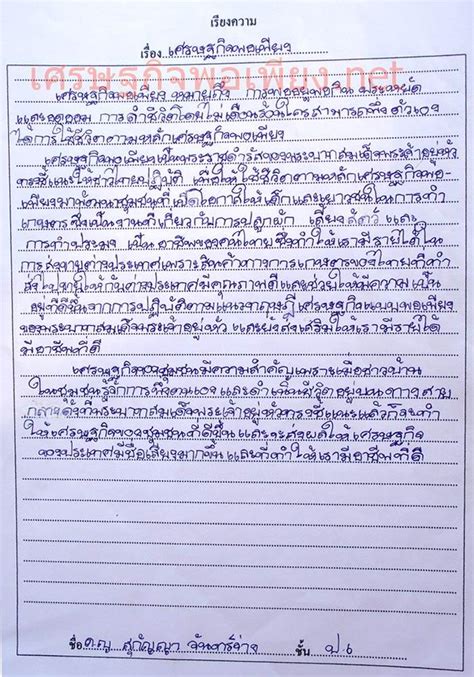 เรียงความ
เรื่อง เศรษฐกิจพอเพียง
เศรษฐกิจพอเพียง.net
เศรษฐกิจพอเพียง หมายถึง การพออยู่พอกิน ประหยัด
และอดออม การดำชีวิตโดยไม่เดือนร้อนใครสามารถพึ่งตัวเอง
ได้การใช้ชีวิตตามหลักเศรษฐกิจพอเพียง
เศรษฐกิจพอเพียงเป็นพระราชดำรัสของพระบาทสมเด็จพระเจ้าอยู่หัว
ทรงชี้แนะให้ชาวไทยปฏิบัติ เพื่อให้ใช้ชีวิตตามหลักเศรษฐกิจพอ-
เพียงมาพัฒนาชุมชนที่เปิดโอกาสให้เด็กและเยาวชนในการทำ
เกษตรซึ่งเป็นงานที่เกี่ยวกับการปลูกผัก เลี้ยงสัตว์ และ
การทำประมง เป็นอาชีพของคนไทยซึ่งทำให้เรามีรายได้ใน
การส่งขายต่างประเทศเพราะสินค้าทางการเกษตรของไทยที่ทำ
ส่งไปขายให้กับต่างประเทศมีคุณภาพดีและช่วยให้มีความเป็น
อยู่ที่ดีขึ้นจากการปฏิบัติตามแนวทฤษฎีเศรษฐกิจแบบพอเพียง
ของพระบาทสมเด็จพระเจ้าอยู่หัว และยังส่งเสริมให้เรามีรายได้
มีอาชีพที่ดี
เศรษฐกิจของชุมชนมีความสำคัญเพราะเมื่อชาวบ้าน
ในชุมชนรู้จักการพึ่งตนเอง และดำเนินชีวิตอยู่บนทางสาย
กลางดังที่พระบาทสมเด็จพระเจ้าอยู่หัวทรงชี้แนะแล้วก็จะทำ
ให้เศรษฐกิจของชุมชนที่ดีขึ้น และจะส่งผลให้เศรษฐกิจ
ของประเทศมีชื่อเสียงมากขึ้น และก็ทำให้เรามีอาชีพที่ดี
ชื่อ ด.ญ สุกัญญา จันทร์ ชั้น ป.๖